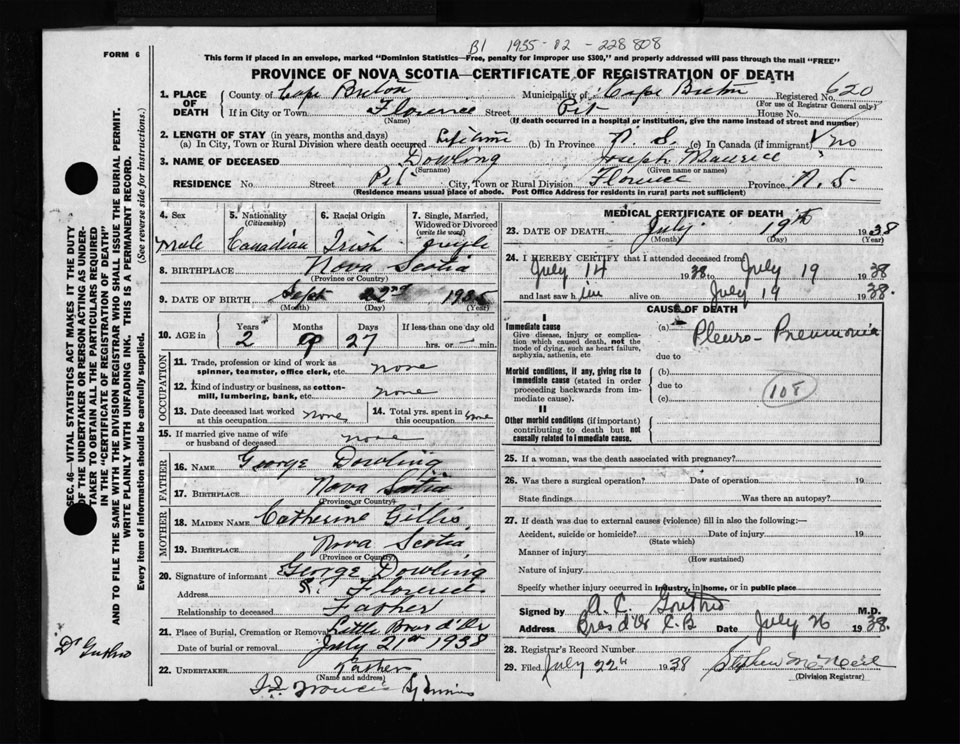 B1 1935-02-228808
FORM 6
This form if placed in an envelope, marked "Dominion Statistics—Free, penalty for improper use $300," and properly addressed will pass through the mail "FREE"
PROVINCE OF NOVA SCOTIA—CERTIFICATE OF REGISTRATION OF DEATH
1. PLACE OF DEATH County of Cape Breton Municipality of Cape Breton Registered No. 620
(For use of Registrar General only)
If in City or Town Florence Street Pit House No.
(Name) (If death occurred in a hospital or institution, give the name instead of street and number)
2. LENGTH OF STAY (in years, months and days)
(a) In City, Town or Rural Division where death occurred Lifetime (b) In Province N. S. (c) In Canada (if immigrant) no
3. NAME OF DECEASED Dowling Joseph Maurice
(Surname) (Given name or names)
RESIDENCE No. Street Pit City, Town or Rural Division Florence Province N. S.
(Residence means usual place of abode. Post Office Address for residents in rural parts not sufficient)
4. Sex Male
5. Nationality (Citizenship) Canadian
6. Racial Origin Irish
7. Single, Married, Widowed or Divorced (write the word) Single
8. BIRTHPLACE Nova Scotia
(Province or Country)
9. DATE OF BIRTH Sept 22nd 1935
(Month) (Day) (Year)
10. AGE in Years 2 Months 9 Days 27 If less than one day old hrs. or — min.
OCCUPATION
11. Trade, profession or kind of work as spinner, teamster, office clerk, etc. none
12. Kind of industry or business, as cotton-mill, lumbering, bank, etc. none
13. Date deceased last worked at this occupation none
14. Total yrs. spent in this occupation none
15. If married give name of wife or husband of deceased none
FATHER
16. NAME George Dowling
17. BIRTHPLACE Nova Scotia
(Province or Country)
MOTHER
18. MAIDEN NAME Catherine Gillis
19. BIRTHPLACE Nova Scotia
(Province or Country)
20. Signature of informant George Dowling
Address Florence
Relationship to deceased Father
21. Place of Burial, Cremation or Removal Little Bras d'Or
Date of burial or removal July 21st 1938
22. UNDERTAKER Father
(Name and address)
MEDICAL CERTIFICATE OF DEATH
23. DATE OF DEATH July 19th 1938
(Month) (Day) (Year)
24. I HEREBY CERTIFY that I attended deceased from
July 14 1938 to July 19 1938
and last saw him alive on July 19 1938.
CAUSE OF DEATH
I
Immediate cause
Give disease, injury or complication which caused death, not the mode of dying, such as heart failure, asphyxia, asthenia, etc.
(a) Pleuro-Pneumonia
due to
Morbid conditions, if any, giving rise to immediate cause (stated in order proceeding backwards from immediate cause).
(b)
due to
(c)
108
II
Other morbid conditions (if important) contributing to death but not causally related to immediate cause.
25. If a woman, was the death associated with pregnancy?
26. Was there a surgical operation? Date of operation 19
State findings Was there an autopsy?
27. If death was due to external causes (violence) fill in also the following:—
Accident, suicide or homicide? Date of injury 19
(State which)
Manner of injury
(How sustained)
Nature of injury
Specify whether injury occurred in industry, in home, or in public place
Signed by A. C. Gouthro M.D.
Address Bras d'Or C.B Date July 26 1938.
28. Registrar's Record Number
29. Filed July 22 1938 Stephen McNeil
(Division Registrar)
SEC. 46—VITAL STATISTICS ACT MAKES IT THE DUTY OF THE UNDERTAKER OR PERSON ACTING AS UNDERTAKER TO OBTAIN ALL THE PARTICULARS REQUIRED IN THE "CERTIFICATE OF REGISTRATION OF DEATH"
AND TO FILE THE SAME WITH THE DIVISION REGISTRAR WHO SHALL ISSUE THE BURIAL PERMIT.
WRITE PLAINLY WITH UNFADING INK. THIS IS A PERMANENT RECORD.
Every item of information should be carefully supplied. (See reverse side for instructions.)